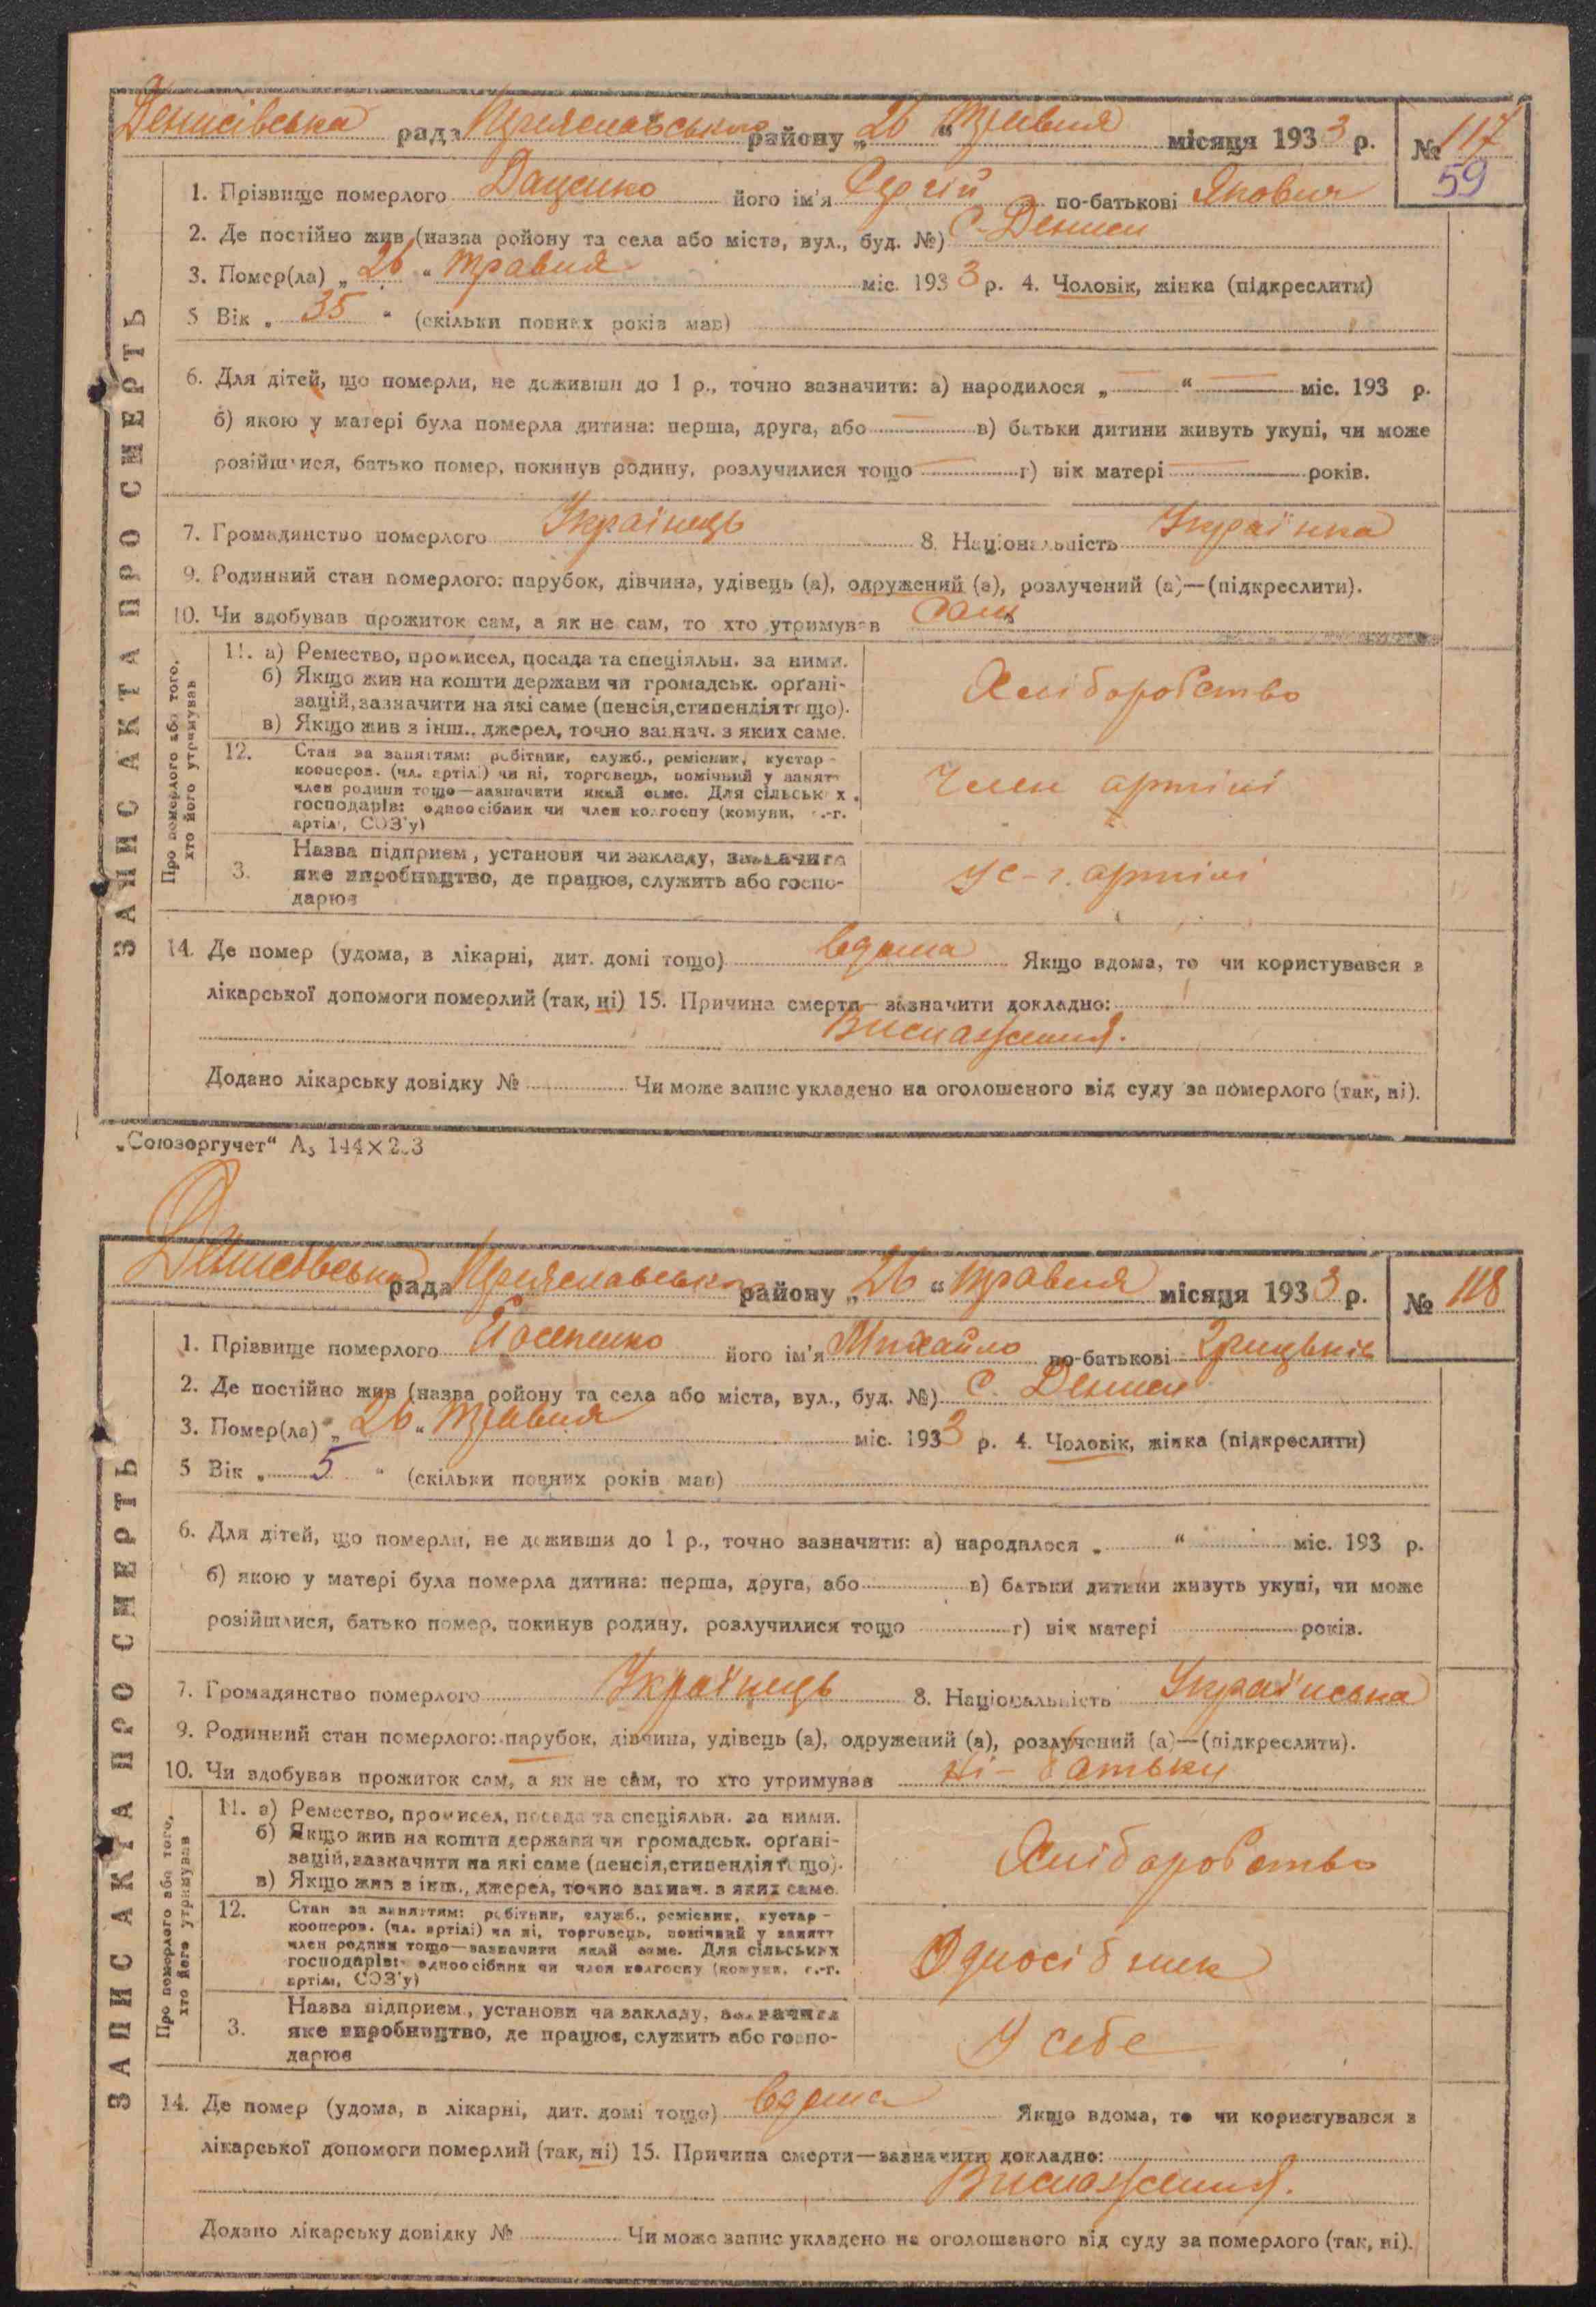 Денисівська рада Переяславського району „26“ травня місяця 1933 р. № 117
59
1. Прізвище померлого Даценко його ім'я Сергій по-батькові Якович
2. Де постійно жив (назва ройону та села або міста, вул., буд. №) С. Дениси
3. Помер(ла) „26“ травня міс. 1933 р. 4. Чоловік, жінка (підкреслити)
5 Вік „35“ (скільки повних років мав)
6. Для дітей, що померли, не доживши до 1 р., точно зазначити: а) народилося „ — “ — міс. 193 р.
б) якою у матері була померла дитина: перша, друга, або — в) батьки дитини живуть укупі, чи може
розійшлися, батько помер, покинув родину, розлучилися тощо — г) вік матері — років.
7. Громадянство померлого Українець 8. Національність Українка
9. Родинний стан померлого: парубок, дівчина, удівець (а), одружений (а), розлучений (а)—(підкреслити).
10. Чи здобував прожиток сам, а як не сам, то хто утримував Сам
ЗАПИС АКТА ПРО СМЕРТЬ
Про померлого або того,
хто його утримував
11. а) Ремество, промисел, посада та спеціяльн. за ними.
б) Якщо жив на кошти держави чи громадськ. орґані-
зацій, зазначити на які саме (пенсія, стипендія тощо).
в) Якщо жив з інш., джерел, точно зазнач. з яких саме.
Хліборобство
12. Стан за заняттям: робітник, служб., ремісник, кустар -
кооперов. (чл. артілі) чи ні, торговець, помічний у занятт
член родини тощо—зазначити який саме. Для сільських
господарів: одноосібник чи член колгоспу (комуни, с.-г.
артілі, СОЗ'у)
Член артілі
3. Назва підприєм, установи чи закладу, зазначити
яке виробництво, де працює, служить або госпо-
дарює
У с-г. артілі
14. Де помер (удома, в лікарні, дит. домі тощо) вдома Якщо вдома, то чи користувався з
лікарської допомоги померлий (так, ні) 15. Причина смерти—зазначити докладно:
Виснаження.
Додано лікарську довідку № Чи може запис укладено на оголошеного від суду за померлого (так, ні).
„Союзоргучет“ А₅ 144×203
Денисовська рада Переяславського району „26“ травня місяця 1933 р. № 118
1. Прізвище померлого його ім'я Михайло по-батькові
2. Де постійно жив (назва ройону та села або міста, вул., буд. №) С. Дениси
3. Помер(ла) „26“ травня міс. 1933 р. 4. Чоловік, жінка (підкреслити)
5 Вік „5“ (скільки повних років мав)
6. Для дітей, що померли, не доживши до 1 р., точно зазначити: а) народилося „ “ міс. 193 р.
б) якою у матері була померла дитина: перша, друга, або в) батьки дитини живуть укупі, чи може
розійшлися, батько помер, покинув родину, розлучилися тощо г) вік матері років.
7. Громадянство померлого Українець 8. Національність Українська
9. Родинний стан померлого: парубок, дівчина, удівець (а), одружений (а), розлучений (а)—(підкреслити).
10. Чи здобував прожиток сам, а як не сам, то хто утримував ні - батьки
ЗАПИС АКТА ПРО СМЕРТЬ
Про померлого або того,
хто його утримував
11. а) Ремество, промисел, посада та спеціяльн. за ними.
б) Якщо жив на кошти держави чи громадськ. орґані-
зацій, зазначити на які саме (пенсія, стипендія тощо).
в) Якщо жив з інш., джерел, точно зазнач. з яких саме.
Хліборобство
12. Стан за заняттям: робітник, служб., ремісник, кустар -
кооперов. (чл. артілі) чи ні, торговець, помічний у занятт
член родини тощо—зазначити який саме. Для сільських
господарів: одноосібник чи член колгоспу (комуни, с.-г.
артілі, СОЗ'у)
Односібник
3. Назва підприєм, установи чи закладу, зазначити
яке виробництво, де працює, служить або госпо-
дарює
У себе
14. Де помер (удома, в лікарні, дит. домі тощо) вдома Якщо вдома, то чи користувався з
лікарської допомоги померлий (так, ні) 15. Причина смерти—зазначити докладно:
Виснаження.
Додано лікарську довідку № Чи може запис укладено на оголошеного від суду за померлого (так, ні).